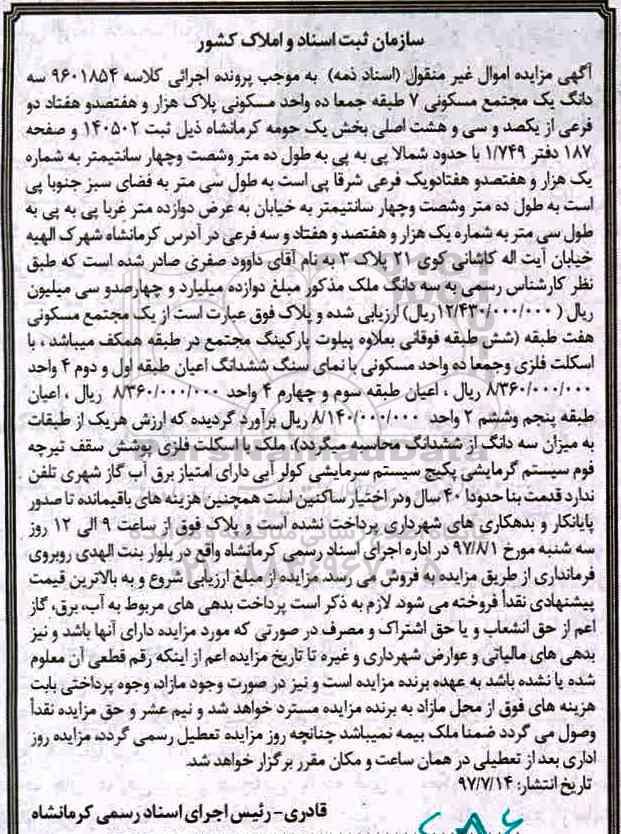 سازمان ثبت اسناد و املاک کشور
آگهی مزایده اموال غیر منقول (اسناد ذمه) به موجب پرونده اجرائی کلاسه ۹۶۰۱۸۵۴ سه
دانگ یک مجتمع مسکونی ۷ طبقه جمعا ده واحد مسکونی پلاک هزار و هفتصدو هفتاد دو
فرعی از یکصد و سی و هشت اصلی بخش یک حومه کرمانشاه ذیل ثبت ۱۴۰۵۰۲ و صفحه
۱۸۷ دفتر ۱/۷۴۹ با حدود شمالا پی به پی به طول ده متر وشصت وچهار سانتیمتر به شماره
یک هزار و هفتصدو هفتادویک فرعی شرقا پی است به طول سی متر به فضای سبز جنوبا پی
است به طول ده متر وشصت وچهار سانتیمتر به خیابان به عرض دوازده متر غربا پی به پی به
طول سی متر به شماره یک هزار و هفتصد و هفتاد و سه فرعی در آدرس کرمانشاه شهرک الهیه
خیابان آیت اله کاشانی کوی ۲۱ پلاک ۳ به نام آقای داوود صفری صادر شده است که طبق
نظر کارشناس رسمی به سه دانگ ملک مذکور مبلغ دوازده میلیارد و چهارصدو سی میلیون
ریال (۱۲/۴۳۰/۰۰۰/۰۰۰ریال) ارزیابی شده و پلاک فوق عبارت است از یک مجتمع مسکونی
هفت طبقه (شش طبقه فوقانی بعلاوه پیلوت پارکینگ مجتمع در طبقه همکف میباشد ، با
اسکلت فلزی وجمعا ده واحد مسکونی با نمای سنگ ششدانگ اعیان طبقه اول و دوم ۴ واحد
۸/۳۶۰/۰۰۰/۰۰۰ ریال ، اعیان طبقه سوم و چهارم ۴ واحد ۸/۳۶۰/۰۰۰/۰۰۰ ریال ، اعیان
طبقه پنجم وششم ۲ واحد ۸/۱۴۰/۰۰۰/۰۰۰ ریال برآورد گردیده که ارزش هریک از طبقات
به میزان سه دانگ از ششدانگ محاسبه میگردد)، ملک با اسکلت فلزی پوشش سقف تیرچه
فوم سیستم گرمایشی پکیج سیستم سرمایشی کولر آبی دارای امتیاز برق آب گاز شهری تلفن
ندارد قدمت بنا حدودا ۴۰ سال ودر اختیار ساکنین است همچنین هزینه های باقیمانده تا صدور
پایانکار و بدهکاری های شهرداری پرداخت نشده است و پلاک فوق از ساعت ۹ الی ۱۲ روز
سه شنبه مورخ ۹۷/۸/۱ در اداره اجرای اسناد رسمی کرمانشاه واقع در بلوار بنت الهدی روبروی
فرمانداری از طریق مزایده به فروش می رسد. مزایده از مبلغ ارزیابی شروع و به بالاترین قیمت
پیشنهادی نقداً فروخته می شود. لازم به ذکر است پرداخت بدهی های مربوط به آب، برق، گاز
اعم از حق انشعاب و یا حق اشتراک و مصرف در صورتی که مورد مزایده دارای آنها باشد و نیز
بدهی های مالیاتی و عوارض شهرداری و غیره تا تاریخ مزایده اعم از اینکه رقم قطعی آن معلوم
شده یا نشده باشد به عهده برنده مزایده است و نیز در صورت وجود مازاد، وجوه پرداختی بابت
هزینه های فوق از محل مازاد به برنده مزایده مسترد خواهد شد و نیم عشر و حق مزایده نقداً
وصول می گردد ضمنا ملک بیمه نمیباشد چنانچه روز مزایده تعطیل رسمی گردد، مزایده روز
اداری بعد از تعطیلی در همان ساعت و مکان مقرر برگزار خواهد شد.
تاریخ انتشار: ۹۷/۷/۱۴
قادری- رئیس اجرای اسناد رسمی کرمانشاه